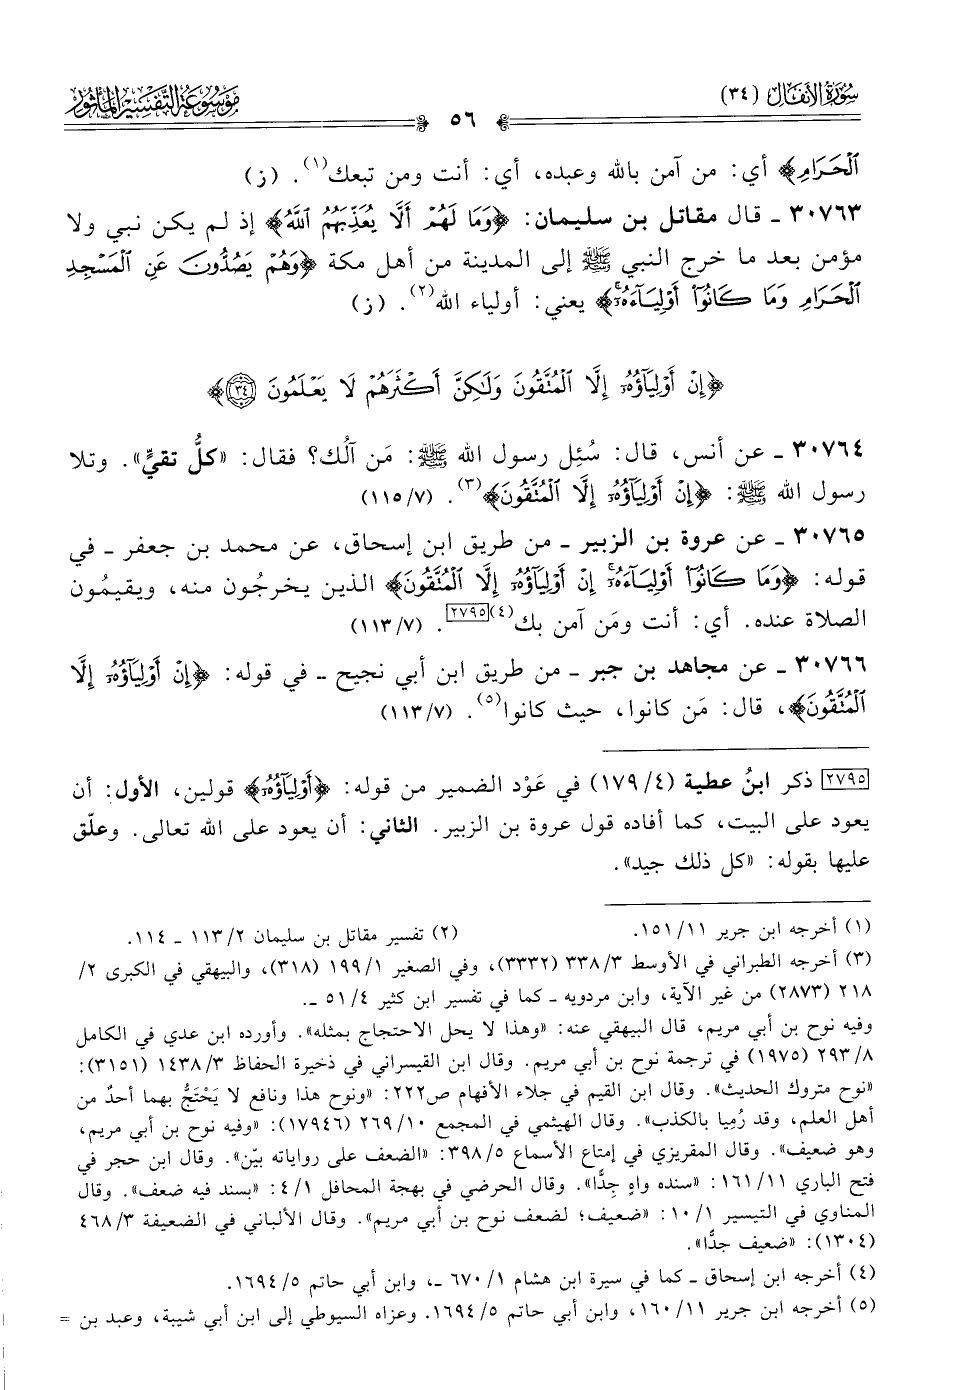 سُورَةُ الأَنفَال (٣٤)
٥٦
مَوْسُوعَة التَّفْسِير المَأْثُور
ٱلْحَرَامِ﴾ أي: من آمن بالله وعبده، أي: أنت ومن تبعك(١). (ز)
٣٠٧٦٣ ـ قال مقاتل بن سليمان: ﴿وَمَا لَهُمْ أَلَّا يُعَذِّبَهُمُ ٱللَّهُ﴾ إذ لم يكن نبي ولا
مؤمن بعد ما خرج النبي ﷺ إلى المدينة من أهل مكة ﴿وَهُمْ يَصُدُّونَ عَنِ ٱلْمَسْجِدِ
ٱلْحَرَامِ وَمَا كَانُوٓا۟ أَوْلِيَآءَهُۥٓ﴾ يعني: أولياء الله(٢). (ز)
﴿إِنْ أَوْلِيَآؤُهُۥٓ إِلَّا ٱلْمُتَّقُونَ وَلَٰكِنَّ أَكْثَرَهُمْ لَا يَعْلَمُونَ ٣٤﴾
٣٠٧٦٤ ـ عن أنس، قال: سُئِل رسول الله ﷺ: مَن آلُك؟ فقال: «كلُّ تقيٍّ». وتلا
رسول الله ﷺ: ﴿إِنْ أَوْلِيَآؤُهُۥٓ إِلَّا ٱلْمُتَّقُونَ﴾(٣). (٧/ ١١٥)
٣٠٧٦٥ ـ عن عروة بن الزبير ـ من طريق ابن إسحاق، عن محمد بن جعفر ـ في
قوله: ﴿وَمَا كَانُوٓا۟ أَوْلِيَآءَهُۥٓ إِنْ أَوْلِيَآؤُهُۥٓ إِلَّا ٱلْمُتَّقُونَ﴾ الذين يخرجُون منه، ويقيمُون
الصلاة عنده. أي: أنت ومَن آمن بك(٤)[٢٧٩٥]. (٧/ ١١٣)
٣٠٧٦٦ ـ عن مجاهد بن جبر ـ من طريق ابن أبي نجيح ـ في قوله: ﴿إِنْ أَوْلِيَآؤُهُۥٓ إِلَّا
ٱلْمُتَّقُونَ﴾، قال: مَن كانوا، حيث كانوا(٥). (٧/ ١١٣)
[٢٧٩٥] ذكر ابنُ عطية (٤/ ١٧٩) في عَوْد الضمير من قوله: ﴿أَوْلِيَآؤُهُۥٓ﴾ قولين، الأول: أن
يعود على البيت، كما أفاده قول عروة بن الزبير. الثاني: أن يعود على الله تعالى. وعلّق
عليها بقوله: «كل ذلك جيد».
(١) أخرجه ابن جرير ١١/ ١٥١. (٢) تفسير مقاتل بن سليمان ٢/ ١١٣ ـ ١١٤.
(٣) أخرجه الطبراني في الأوسط ٣/ ٣٣٨ (٣٣٣٢)، وفي الصغير ١/ ١٩٩ (٣١٨)، والبيهقي في الكبرى ٢/
٢١٨ (٢٨٧٣) من غير الآية، وابن مردويه ـ كما في تفسير ابن كثير ٤/ ٥١ ـ.
وفيه نوح بن أبي مريم، قال البيهقي عنه: «وهذا لا يحل الاحتجاج بمثله». وأورده ابن عدي في الكامل
٨/ ٢٩٣ (١٩٧٥) في ترجمة نوح بن أبي مريم. وقال ابن القيسراني في ذخيرة الحفاظ ٣/ ١٤٣٨ (٣١٥١):
«نوح متروك الحديث». وقال ابن القيم في جلاء الأفهام ص٢٢٢: «ونوح هذا ونافع لا يَحْتَجُّ بهما أحدٌ من
أهل العلم، وقد رُمِيا بالكذب». وقال الهيثمي في المجمع ١٠/ ٢٦٩ (١٧٩٤٦): «وفيه نوح بن أبي مريم،
وهو ضعيف». وقال المقريزي في إمتاع الأسماع ٥/ ٣٩٨: «الضعف على رواياته بيّن». وقال ابن حجر في
فتح الباري ١١/ ١٦١: «سنده واهٍ جِدًّا». وقال الحرضي في بهجة المحافل ١/ ٤: «بسند فيه ضعف». وقال
المناوي في التيسير ١/ ١٠: «ضعيف؛ لضعف نوح بن أبي مريم». وقال الألباني في الضعيفة ٣/ ٤٦٨
(١٣٠٤): «ضعيف جدًّا».
(٤) أخرجه ابن إسحاق ـ كما في سيرة ابن هشام ١/ ٦٧٠ ـ، وابن أبي حاتم ٥/ ١٦٩٤.
(٥) أخرجه ابن جرير ١١/ ١٦٠، وابن أبي حاتم ٥/ ١٦٩٤. وعزاه السيوطي إلى ابن أبي شيبة، وعبد بن =